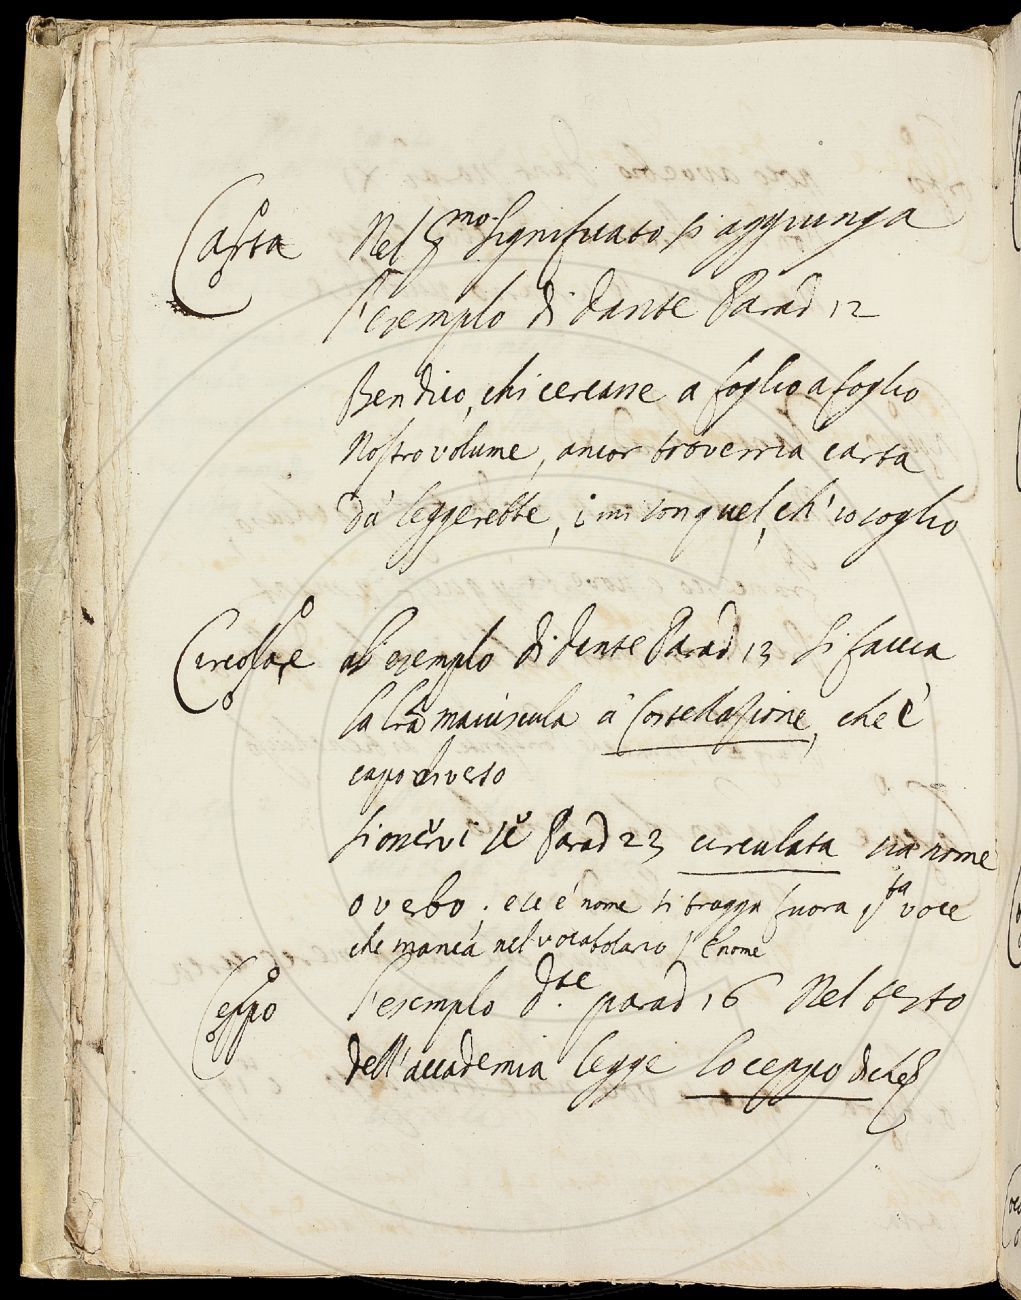 Carta Nel p.mo significato si aggiunga
l'esemplo di Dante Parad 12
Ben dico, chi cercasse a foglio a foglio
Nostro volume, ancor troverria carta
Du' leggerebbe, i mi son quel, ch' io soglio
Circolare all' esemplo di dante Parad 13 si faccia
la lra maiuscula a Costellazione, che è
capo di verso
Parad 23 circulata sia nome
o verbo; e se è nome si tragga fuora q.ta voce
che manca nel vocabolario è nome
Ceppo l'esemplo d. parad 16 Nel testo
dell'accademia legge lo ceppo di che